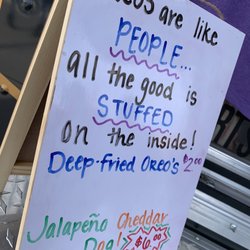 are like
PEOPLE...
all the good is
STUFFED
on the inside!
Deep-fried Oreo's $2.00
Jalapeño Cheddar
Dog $6.00